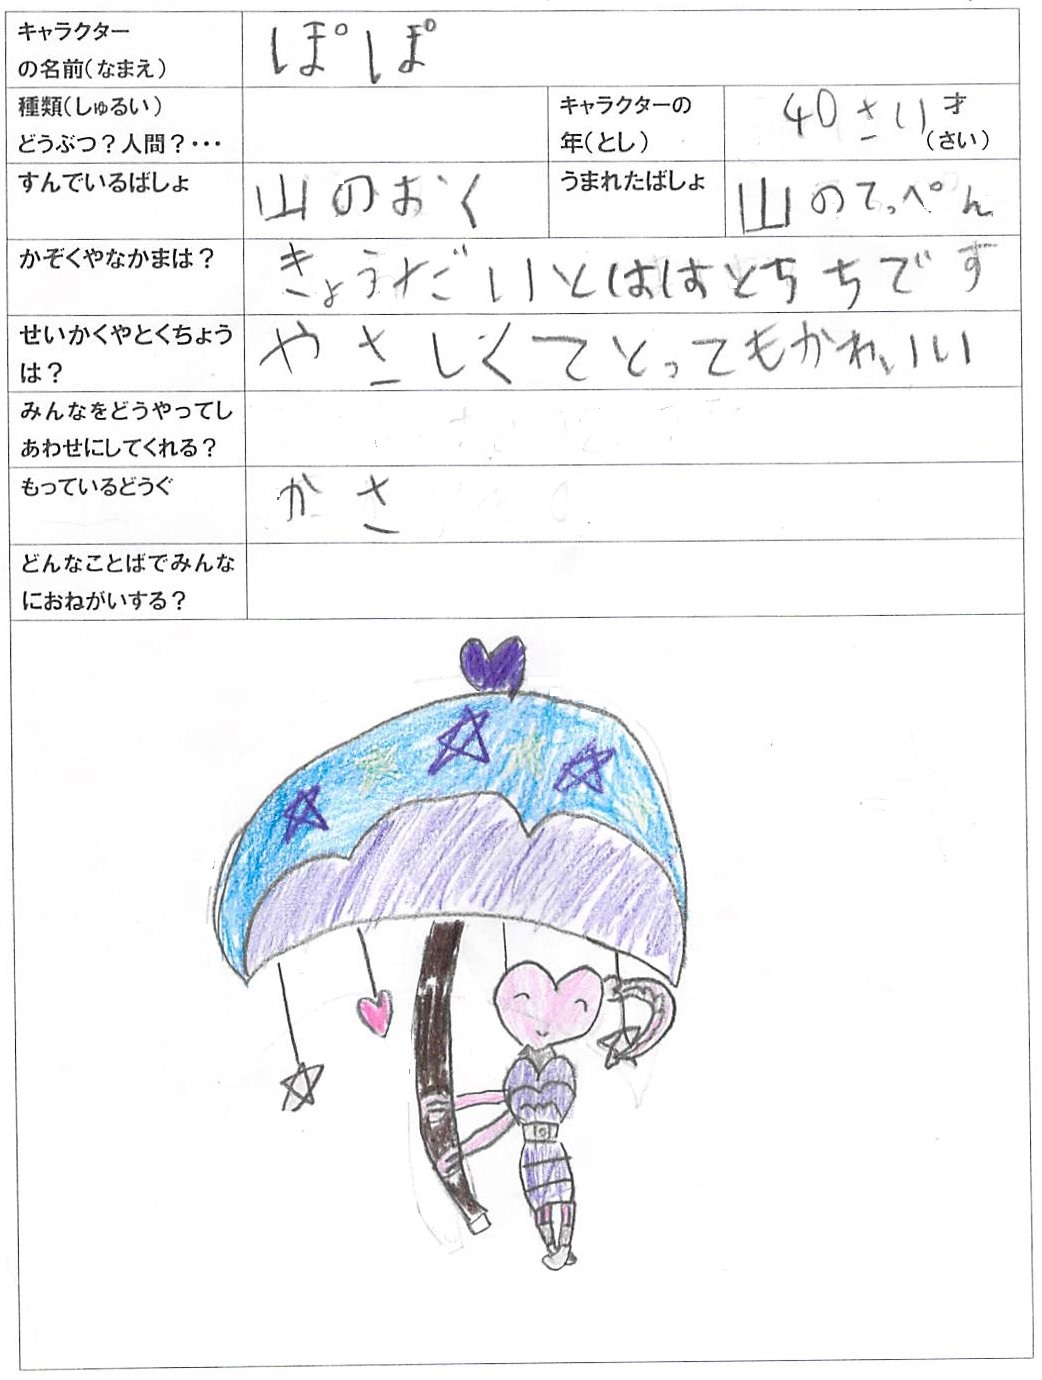 キャラクター
の名前(なまえ)
ぽぽ
種類(しゅるい)
どうぶつ?人間?・・・
キャラクターの
年(とし)
40さい
才
(さい)
すんでいるばしょ
山のおく
うまれたばしょ
山のてっぺん
かぞくやなかまは?
きょうだいとははとちちです
せいかくやとくちょう
は?
やさしくてとってもかわいい
みんなをどうやってし
あわせにしてくれる?
もっているどうぐ
かさ
どんなことばでみんな
におねがいする?